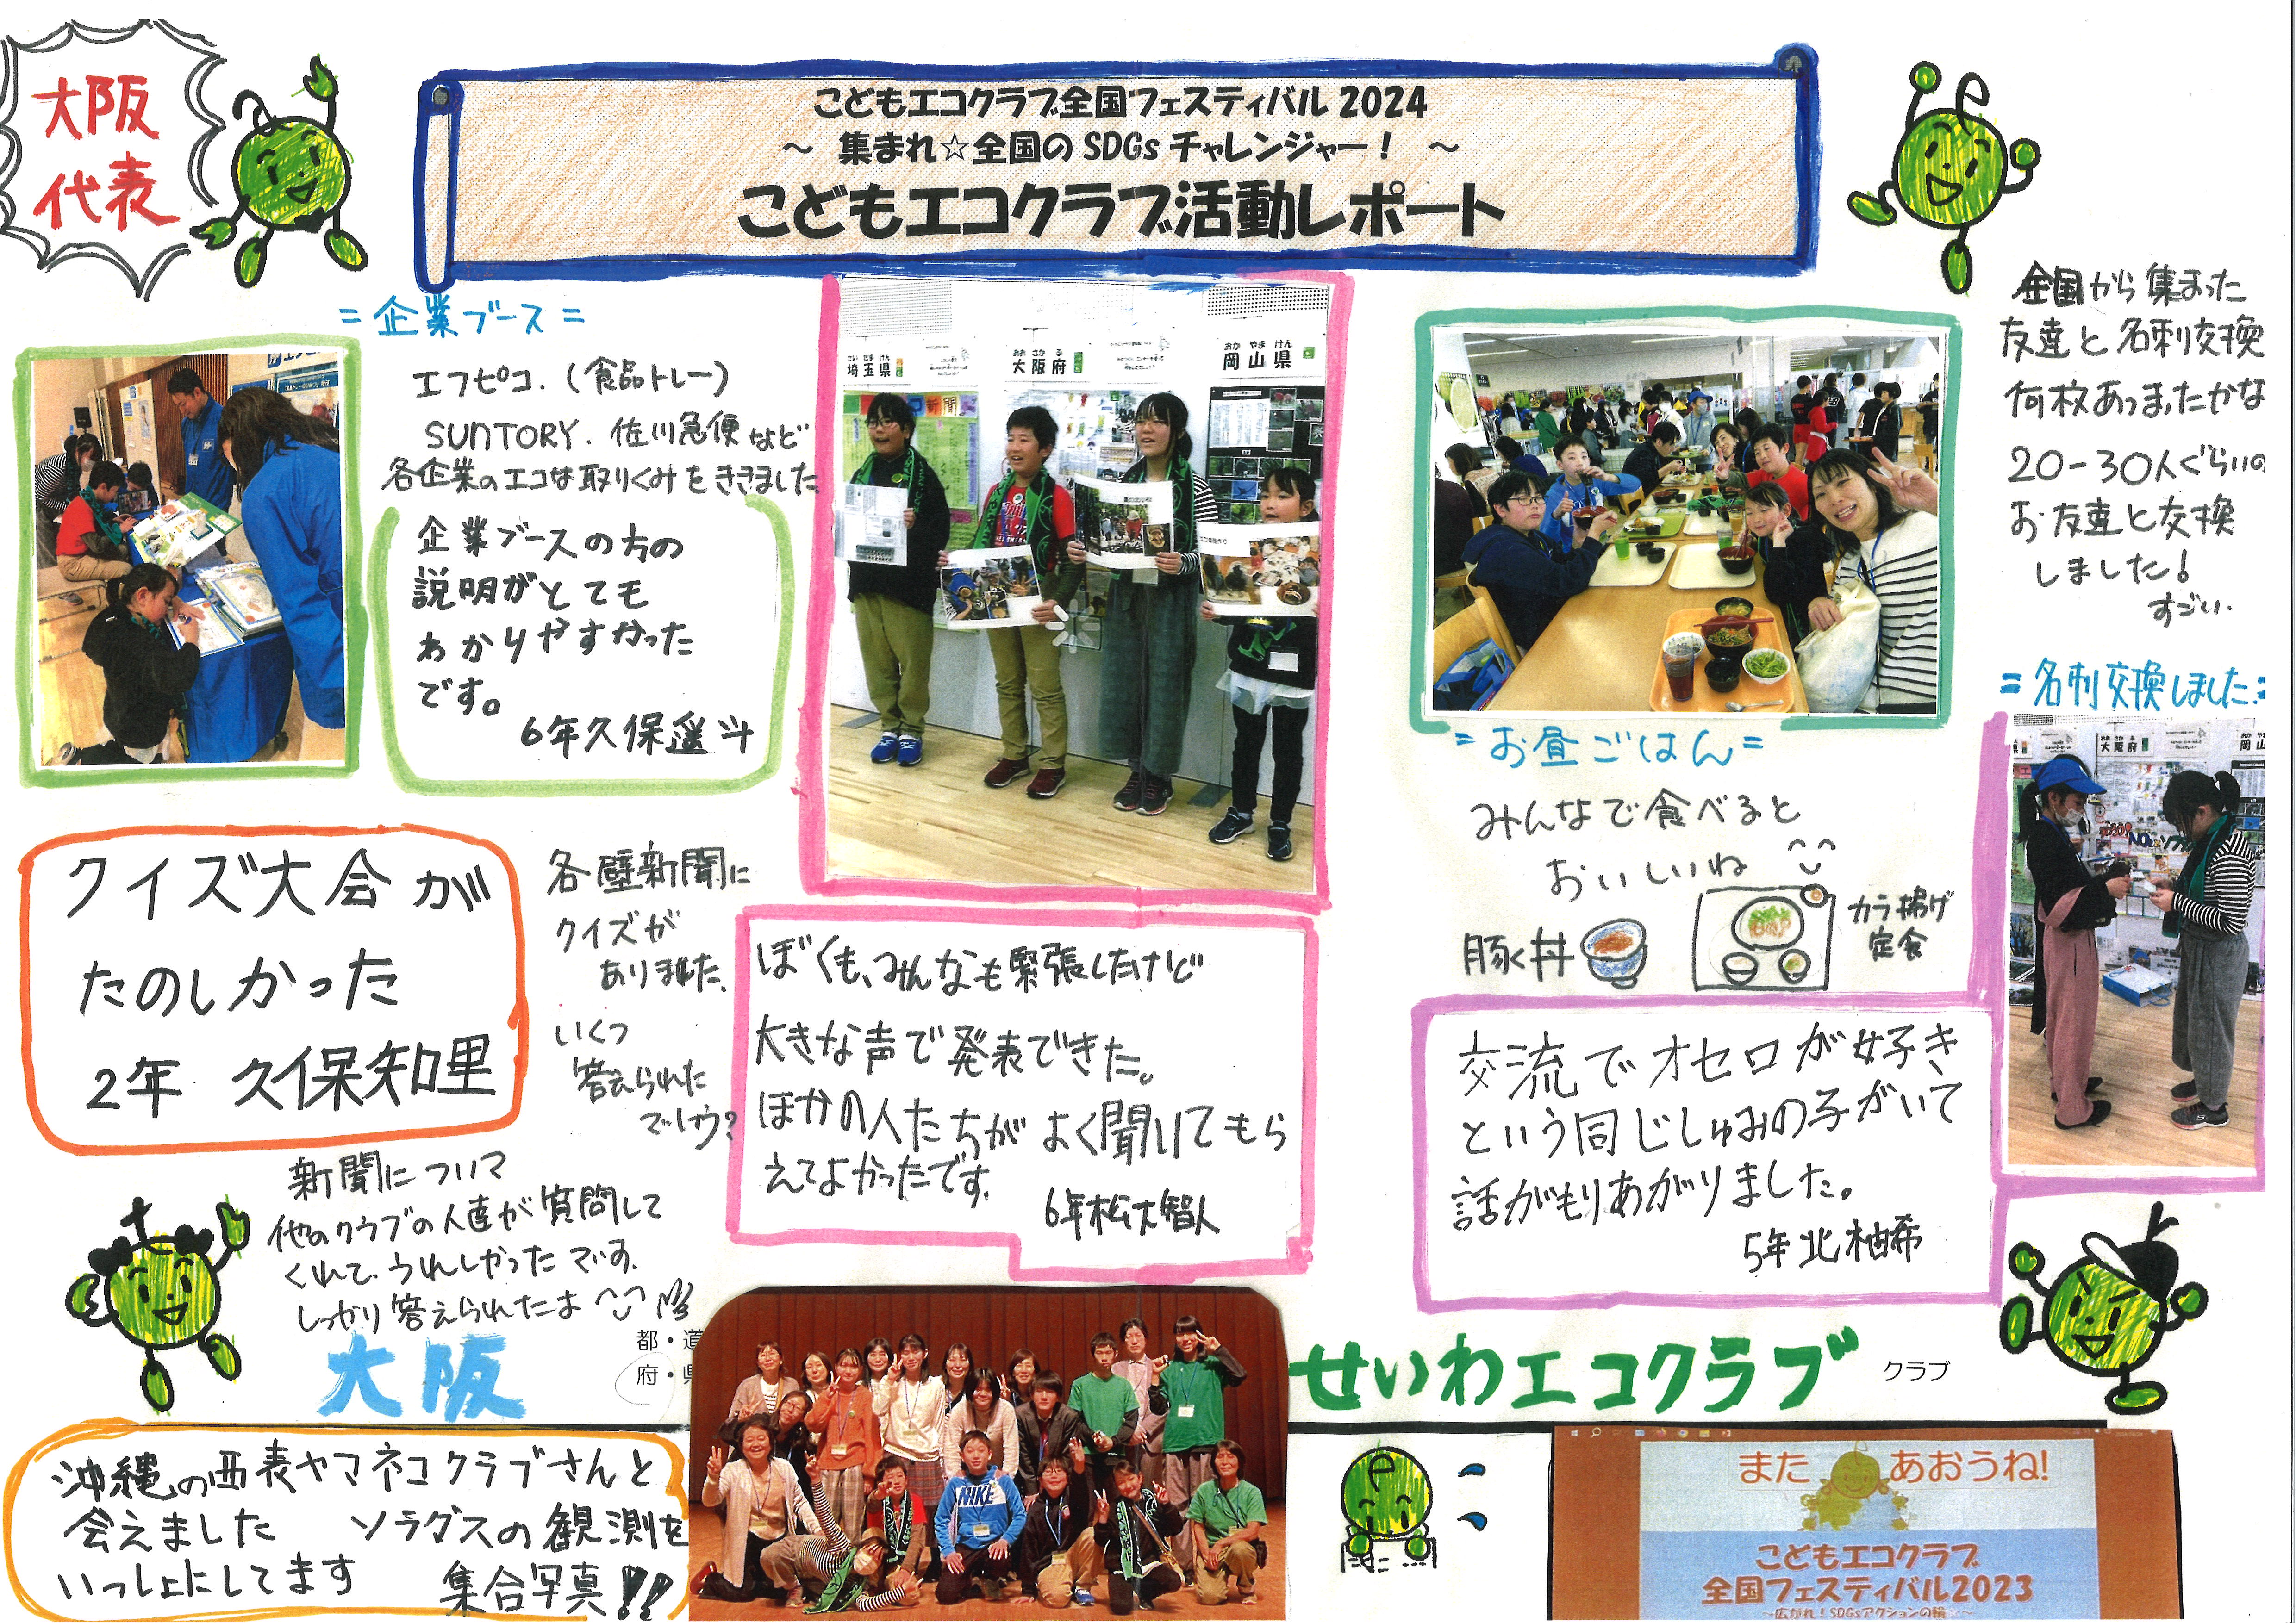 大阪
代表
こどもエコクラブ全国フェスティバル2024
～ 集まれ☆全国のSDGsチャレンジャー！ ～
こどもエコクラブ活動レポート
＝企業ブース＝
エフピコ.（食品トレー）
SUNTORY. 佐川急便など
各企業のエコな取りくみをききました
企業ブースの方の
説明がとても
わかりやすかった
です。
6年久保遥斗
さいたまけん
埼玉県
おおさかふ
大阪府
おかやまけん
岡山県
全国から集まった
友達と名刺交換
何枚あつまったかな
20-30人ぐらいの
お友達と交換
しました!
すごい.
＝名刺交換しました＝
大阪府
岡山
＝お昼ごはん＝
みんなで食べると
おいしいね
豚丼
カラ揚げ
定食
クイズ大会が
たのしかった
2年 久保知里
各壁新聞に
クイズが
ありました.
いくつ
答えられた
でしょう?
ぼくも、みんなも緊張したけど
大きな声で発表できた。
ほかの人たちがよく聞いてもら
えてよかったです.
6年松本智人
交流でオセロが好き
という同じしゅみの子がいて
話がもりあがりました。
5年北柚希
新聞について
他のクラブの人達が質問して
くれて.うれしかったです.
しっかり答えられたよ
大阪
都・道
府・県
せいわエコクラブ
クラブ
沖縄の西表ヤマネコクラブさんと
会えました ソラダスの観測を
いっしょにしてます 集合写真!!
NIKE
また あおうね!
こどもエコクラブ
全国フェスティバル2023
～広がれ！SDGsアクションの輪～